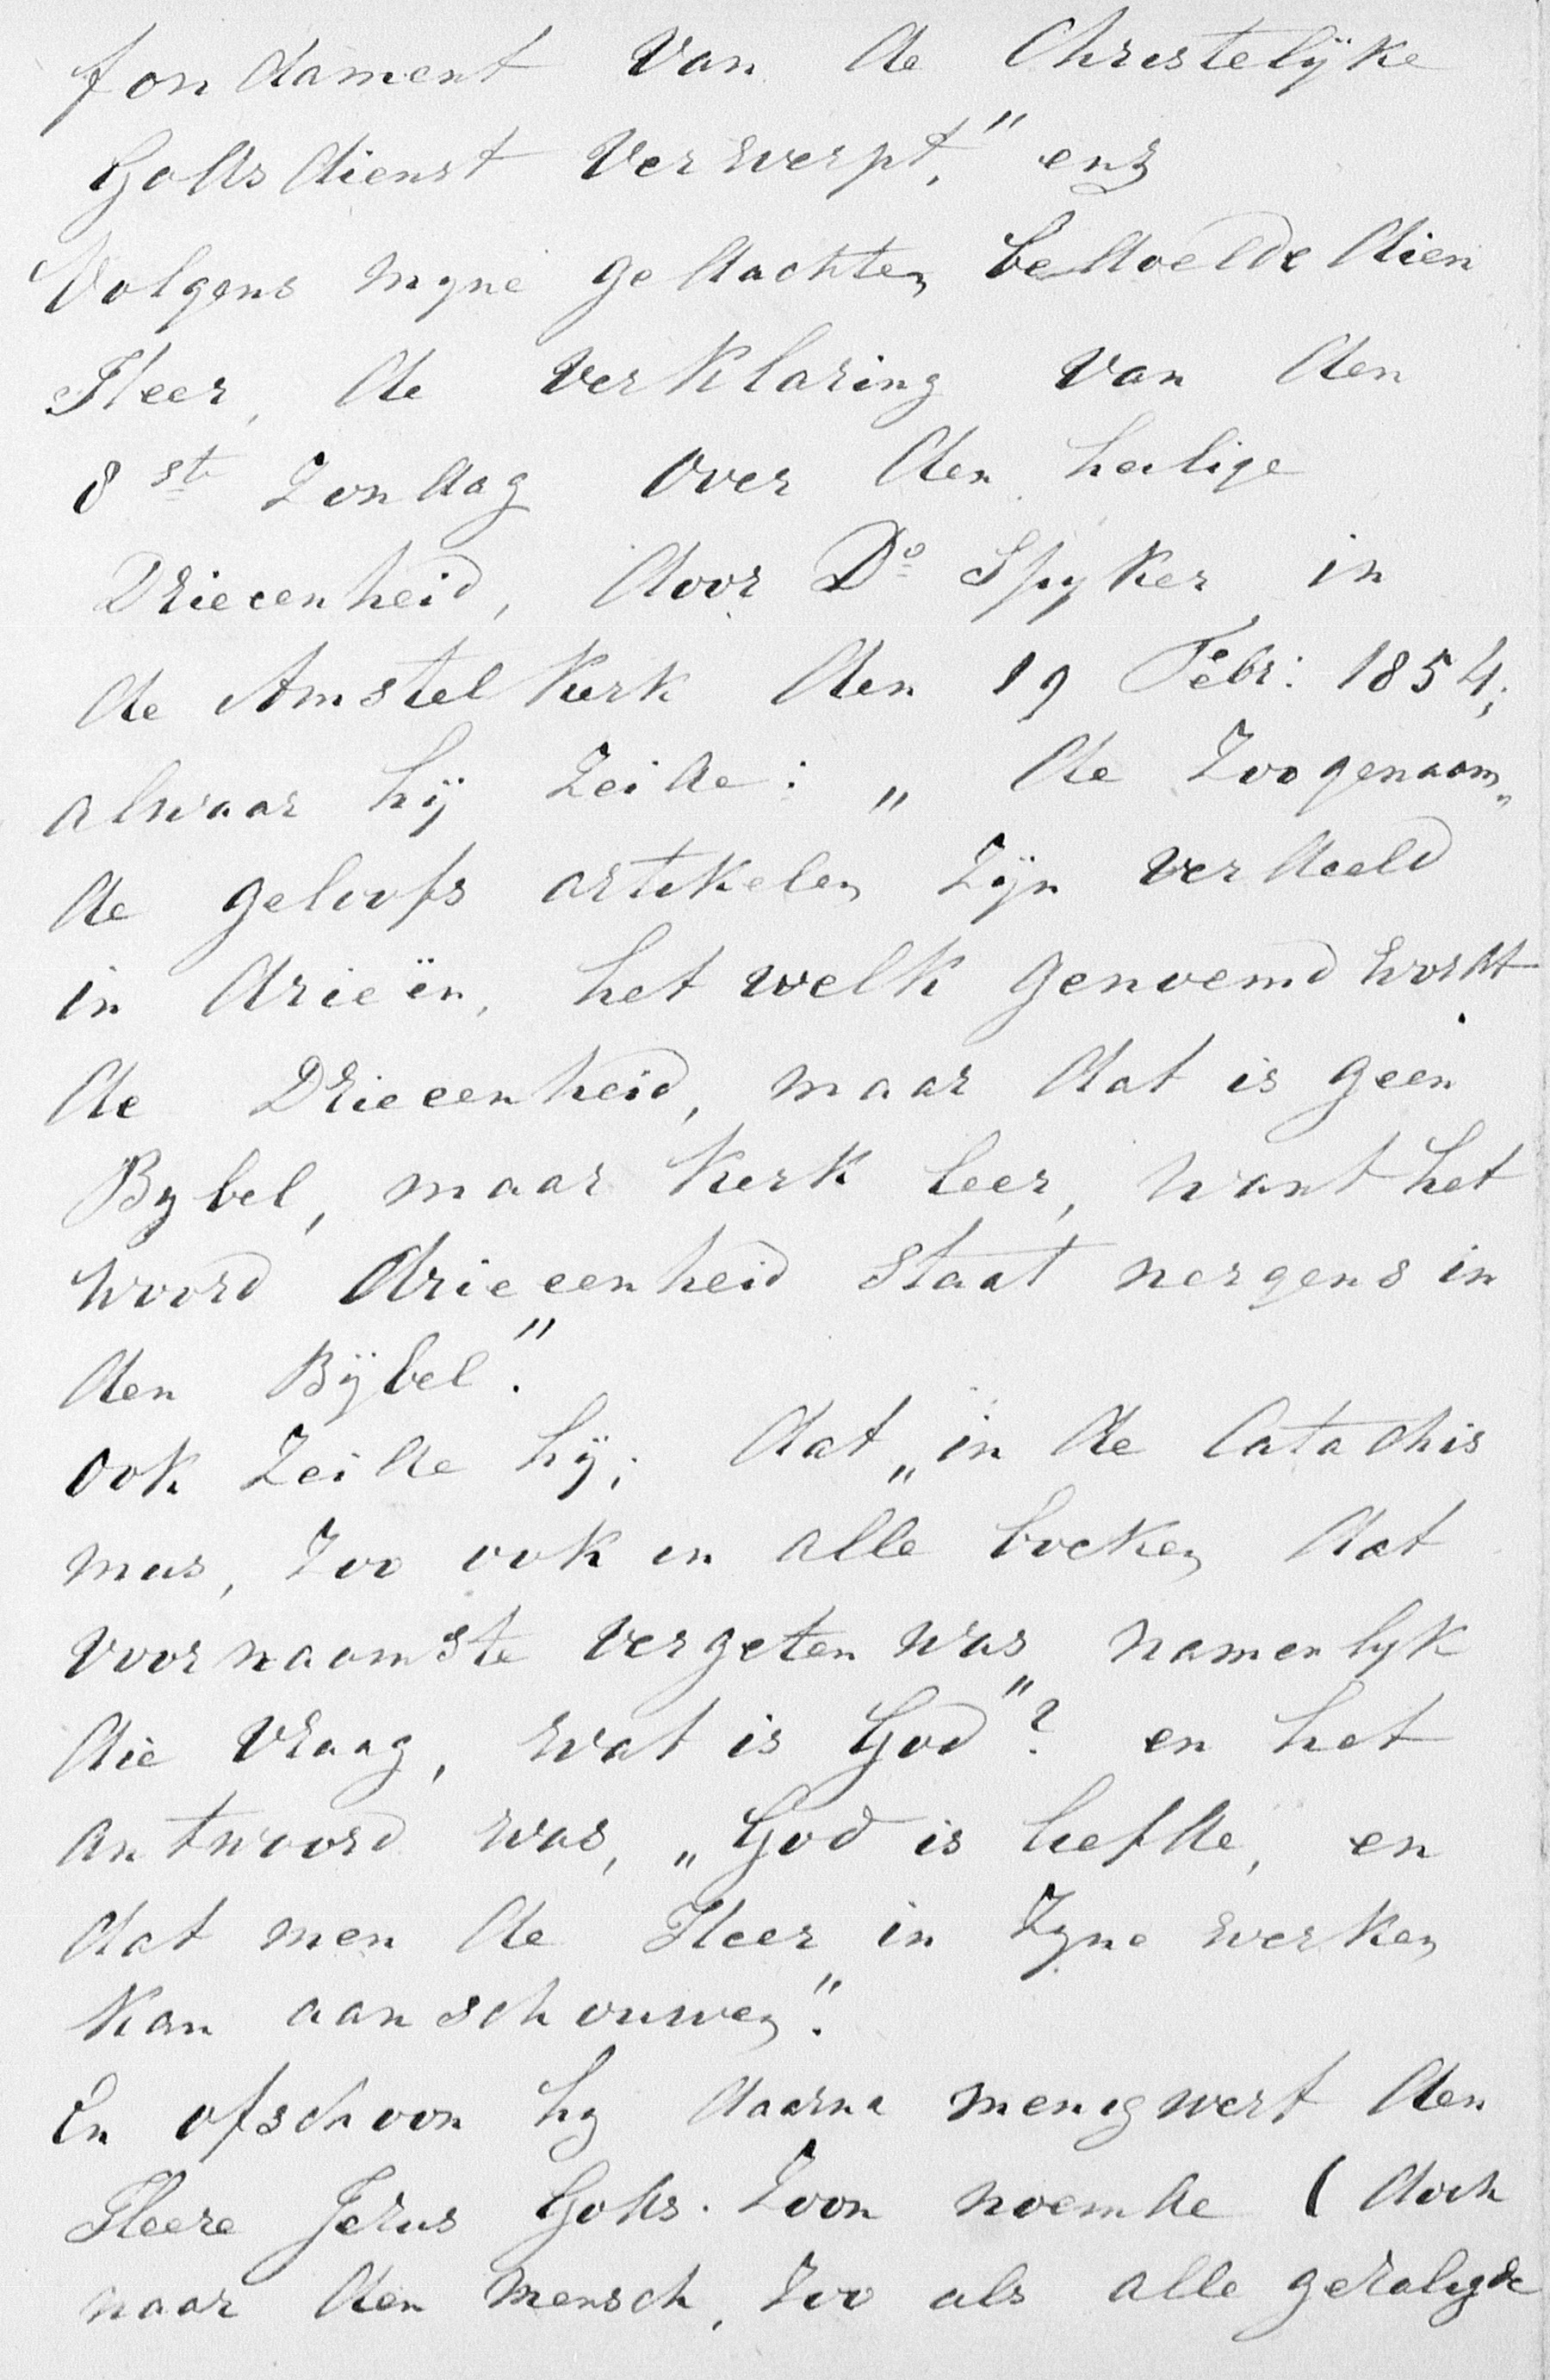 fondament van de Christelijke
Godsdienst verwerpt," enz
Volgens myne gedachten bedoelde dien
Heer, de verklaring van den
8ste Zondag over den heilige
Drieeenheid, door Do Spyker in
de Amstelkerk den 19 Febr: 1854;
alwaar hij zeide: „ de Zoogenaam„
de geloofs artikelen zijn verdeeld
in drieën, het welk genoemd wordt
de Drieeenheid, maar dat is geen
Bybel, maar Kerk leer, want het
woord drieeenheid staat nergens in
den Bijbel".
ook zeide hij; dat „in de Catachis
mus, zoo ook in alle boeken dat
voornaamste vergeten was, namenlyk
die vraag, wat is God"? en het
antwoord was, „God is liefde, en
dat men de Heer in Zyne werken
kan aanschouwen".
En ofschoon hy daarna menigwerf den
Heere Jezus Gods. Zoon noemde ( doch
naar den mensch, zoo als alle gezaligde